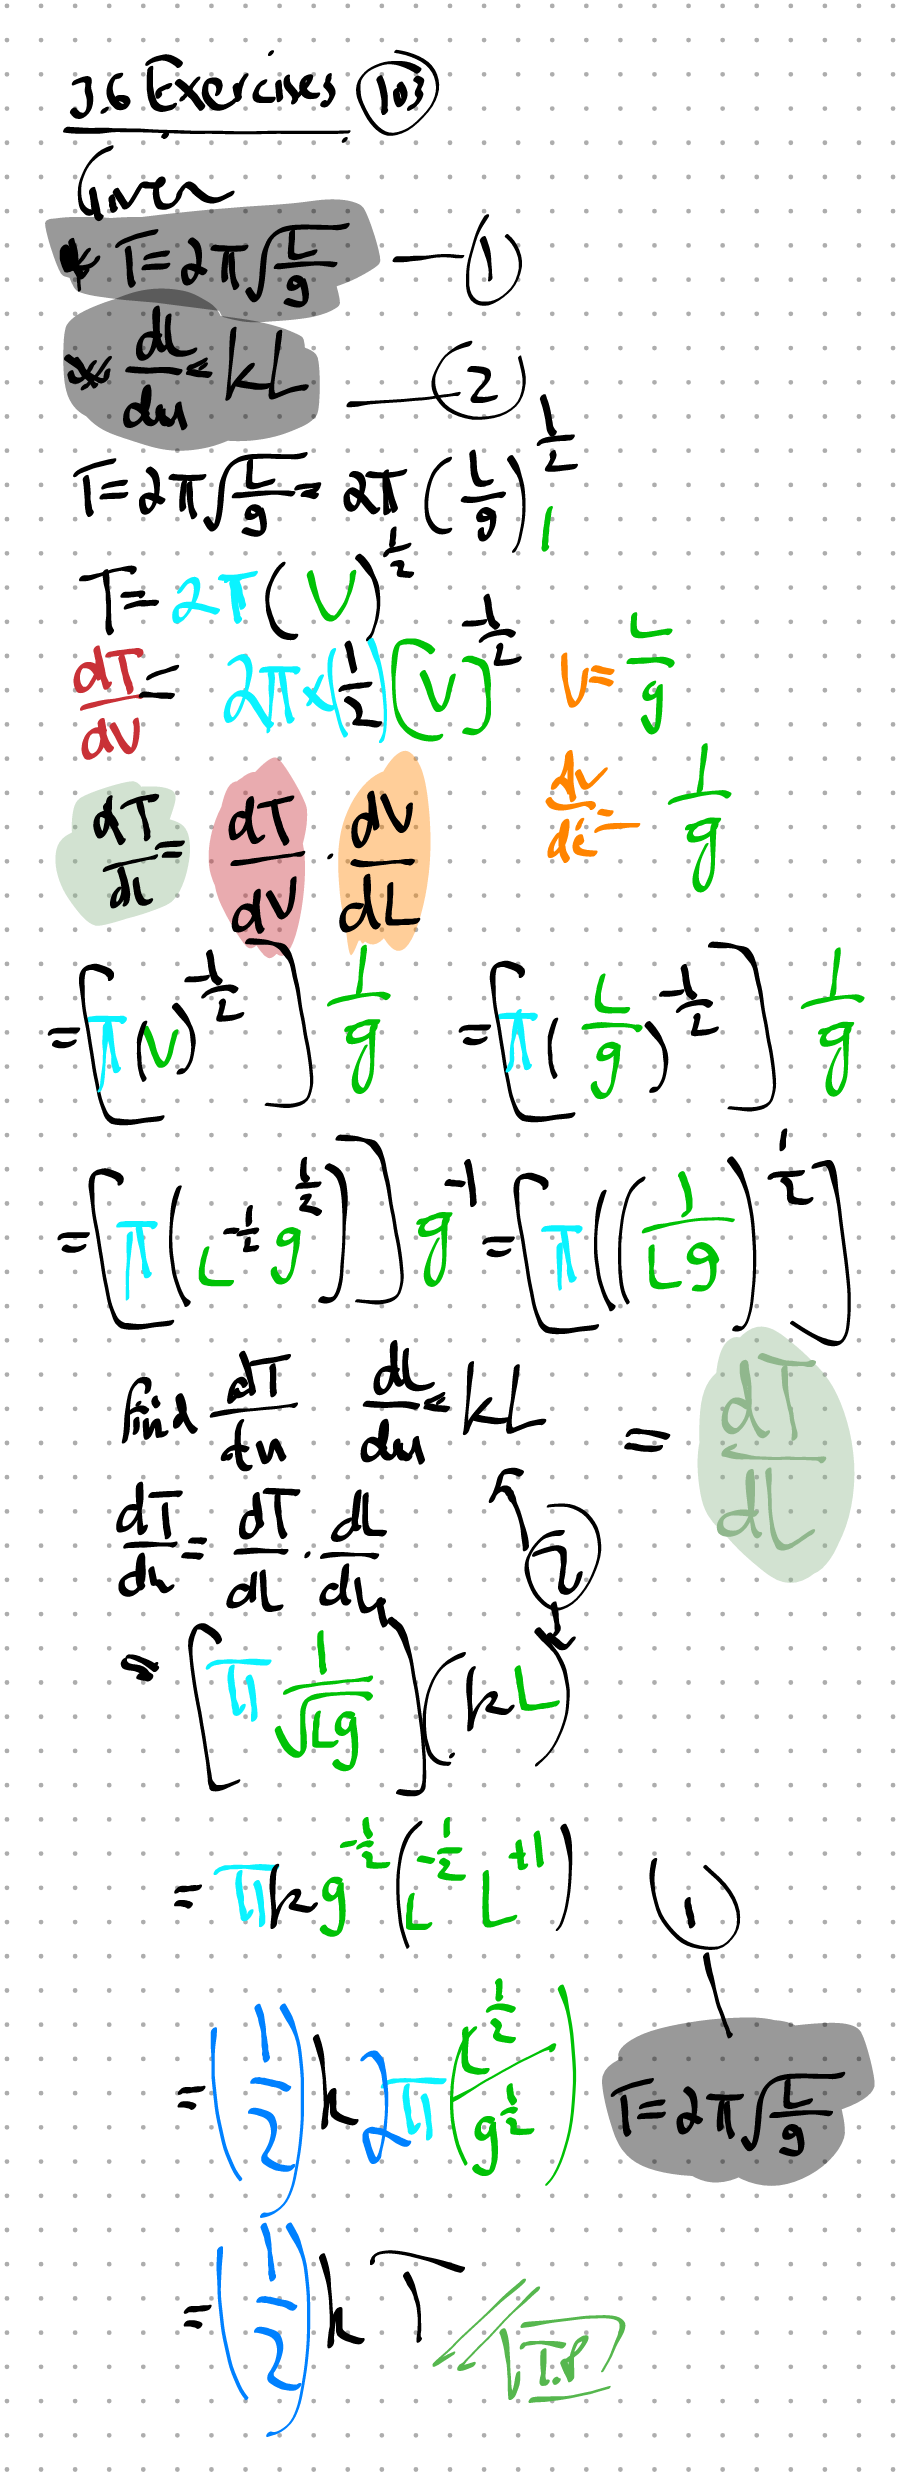 3.6 Exercises (103)
Given
* T = 2π√(L/g) — (1)
* dL/du = kL — (2)
T = 2π√(L/g) = 2π (L/g)^(1/2)
T = 2π (V)^(1/2)
dT/dV = 2π × (1/2) (V)^(-1/2) V = L/g
dT/dL = dT/dV · dV/dL
= [π (V)^(-1/2)] 1/g = [π (L/g)^(-1/2)] 1/g
= [π (L^(-1/2) g^(1/2))] g^(-1) = [π ((1/Lg)^(1/2)]
= dT/dL
find dL/du = kL
dT/du = dT/dL · dL/du (2)
= [π 1/√(Lg)] (kL)
= πk g^(-1/2) (L^(-1/2) L^(+1))
= (1/2) k 2π (L^(1/2) / g^(1/2)) (1) T = 2π√(L/g)
= (1/2) k T